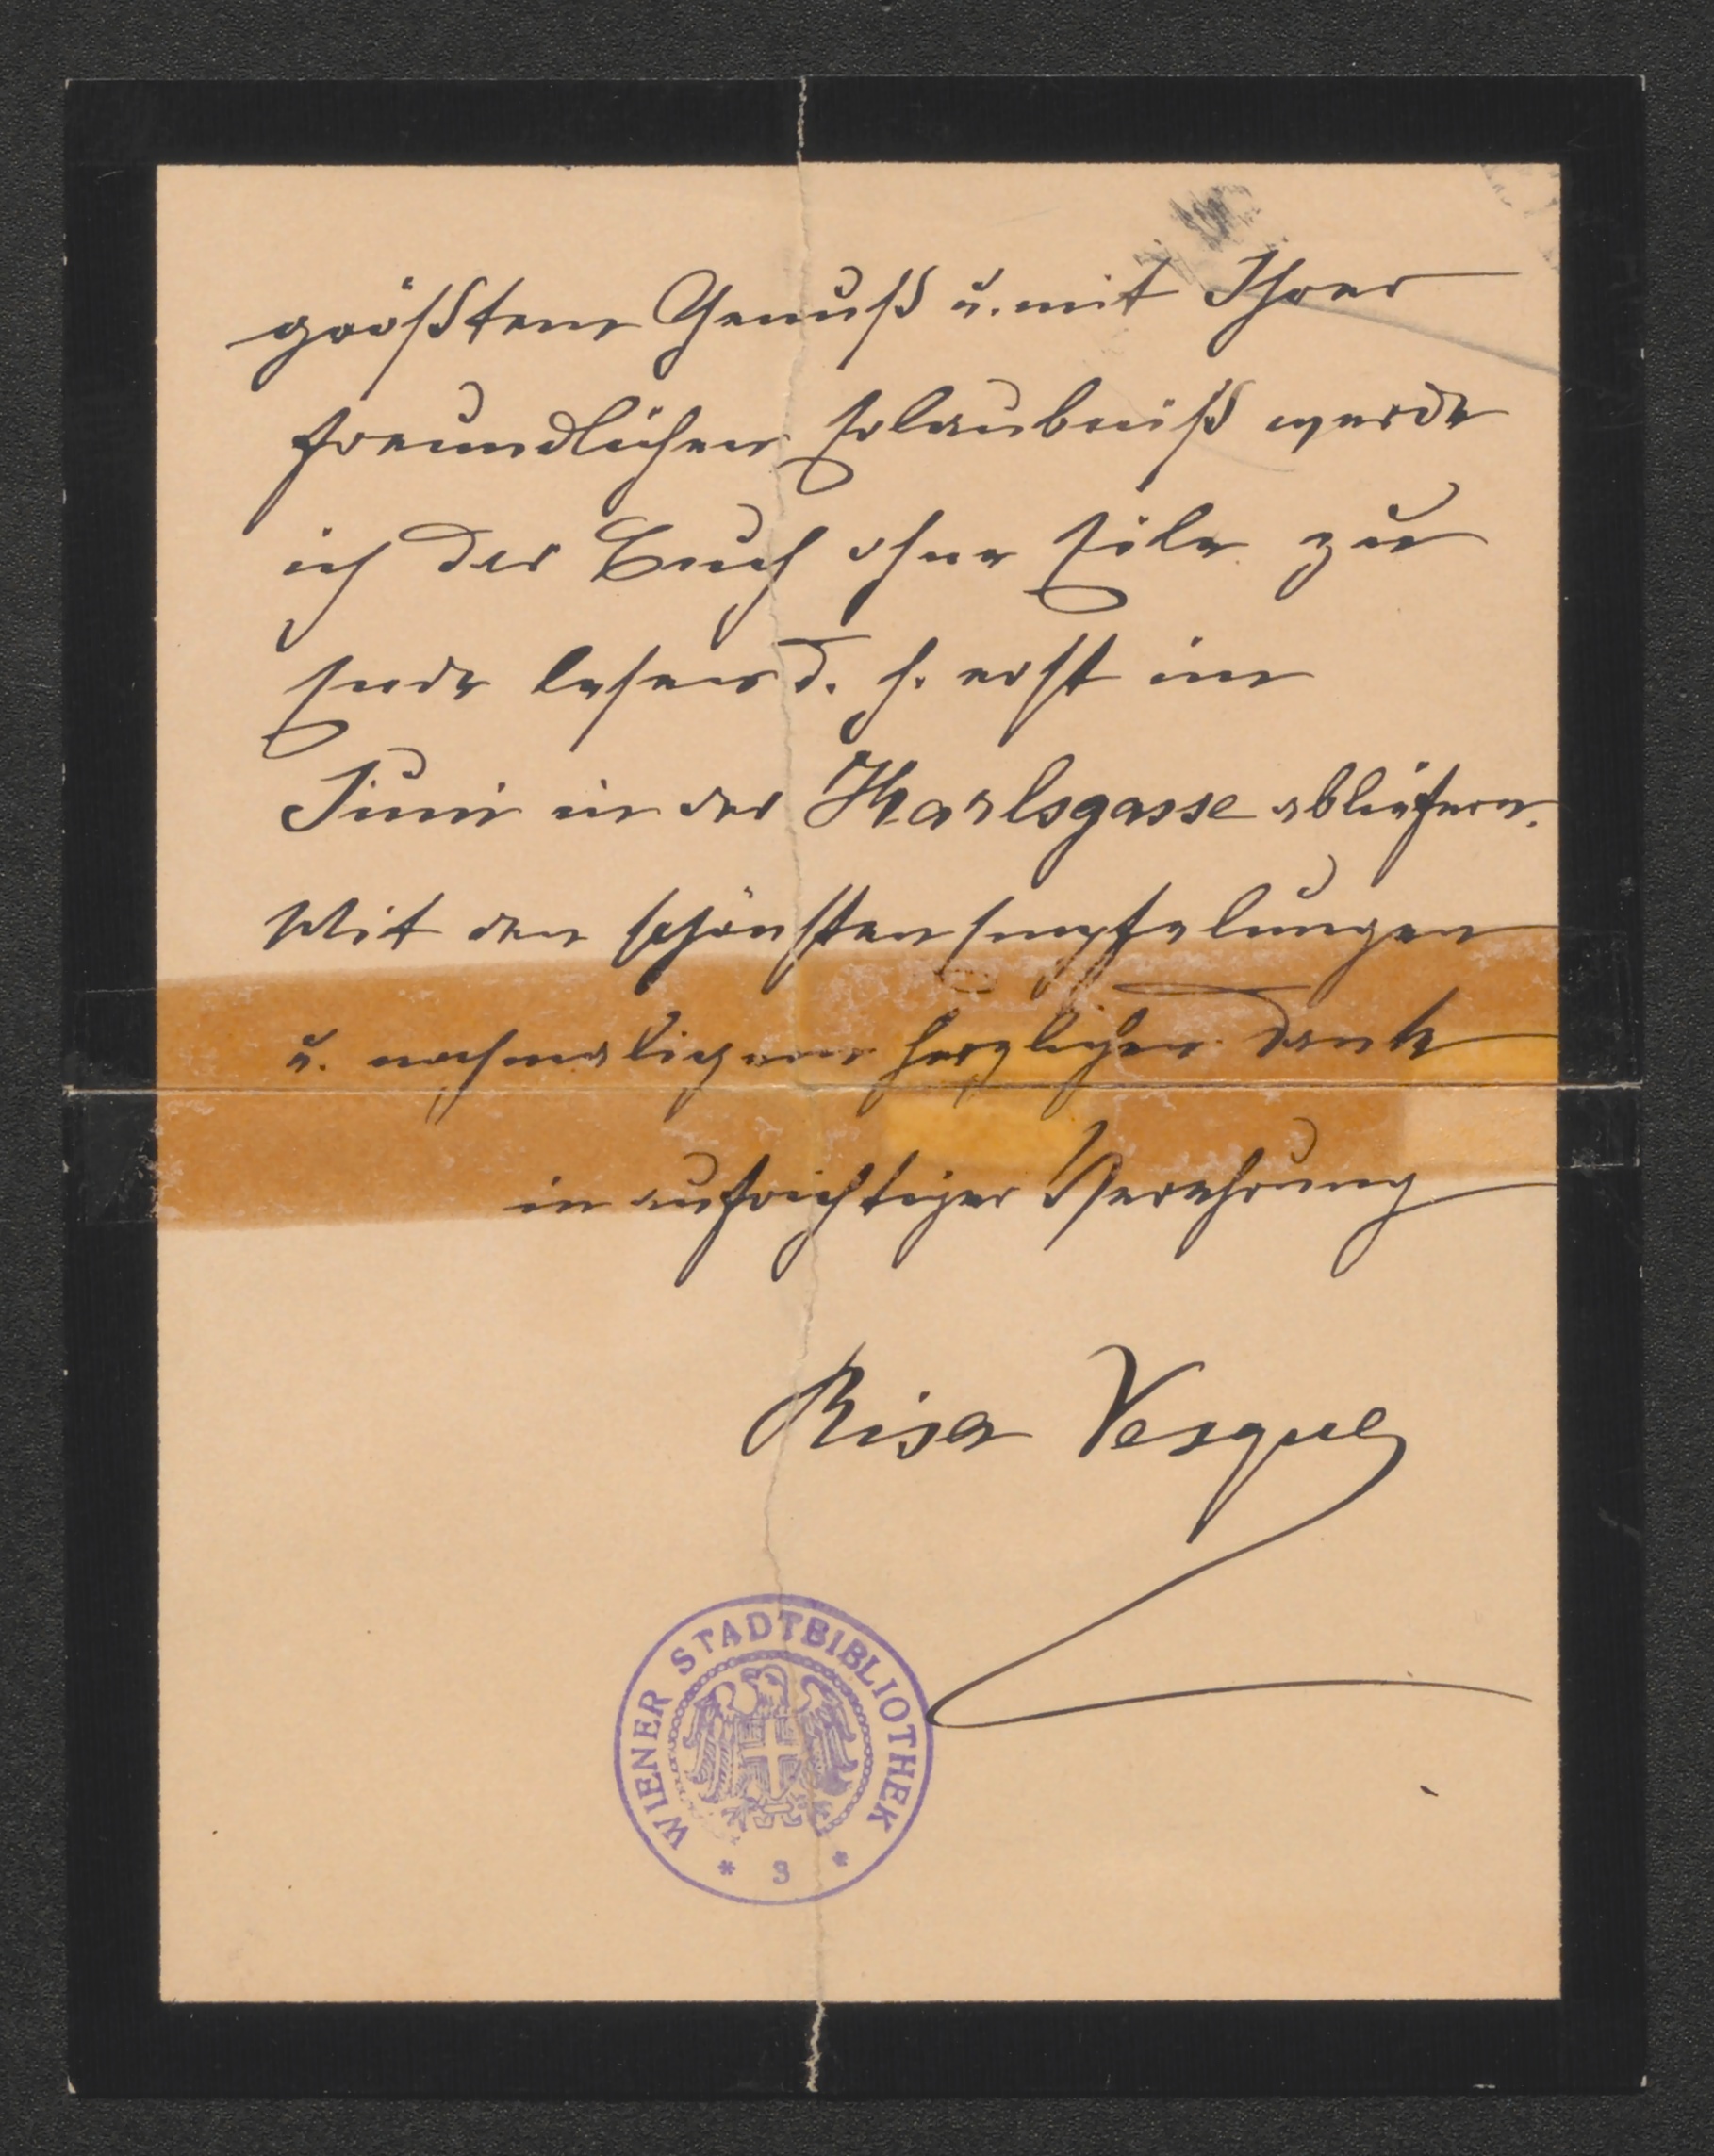 größtem Genuß u. mit Ihrer
freundlichen Erlaubniß werde
ich das Buch ohne Eile zu
Ende lesen d. h. erst im
Juni in der Karlsgasse abliefern.
Mit den schönsten Empfelungen
u. nochmaligem herzlichen Dank
in aufrichtiger Verehrung
Risa Vesque
WIENER STADTBIBLIOTHEK
* 3 *